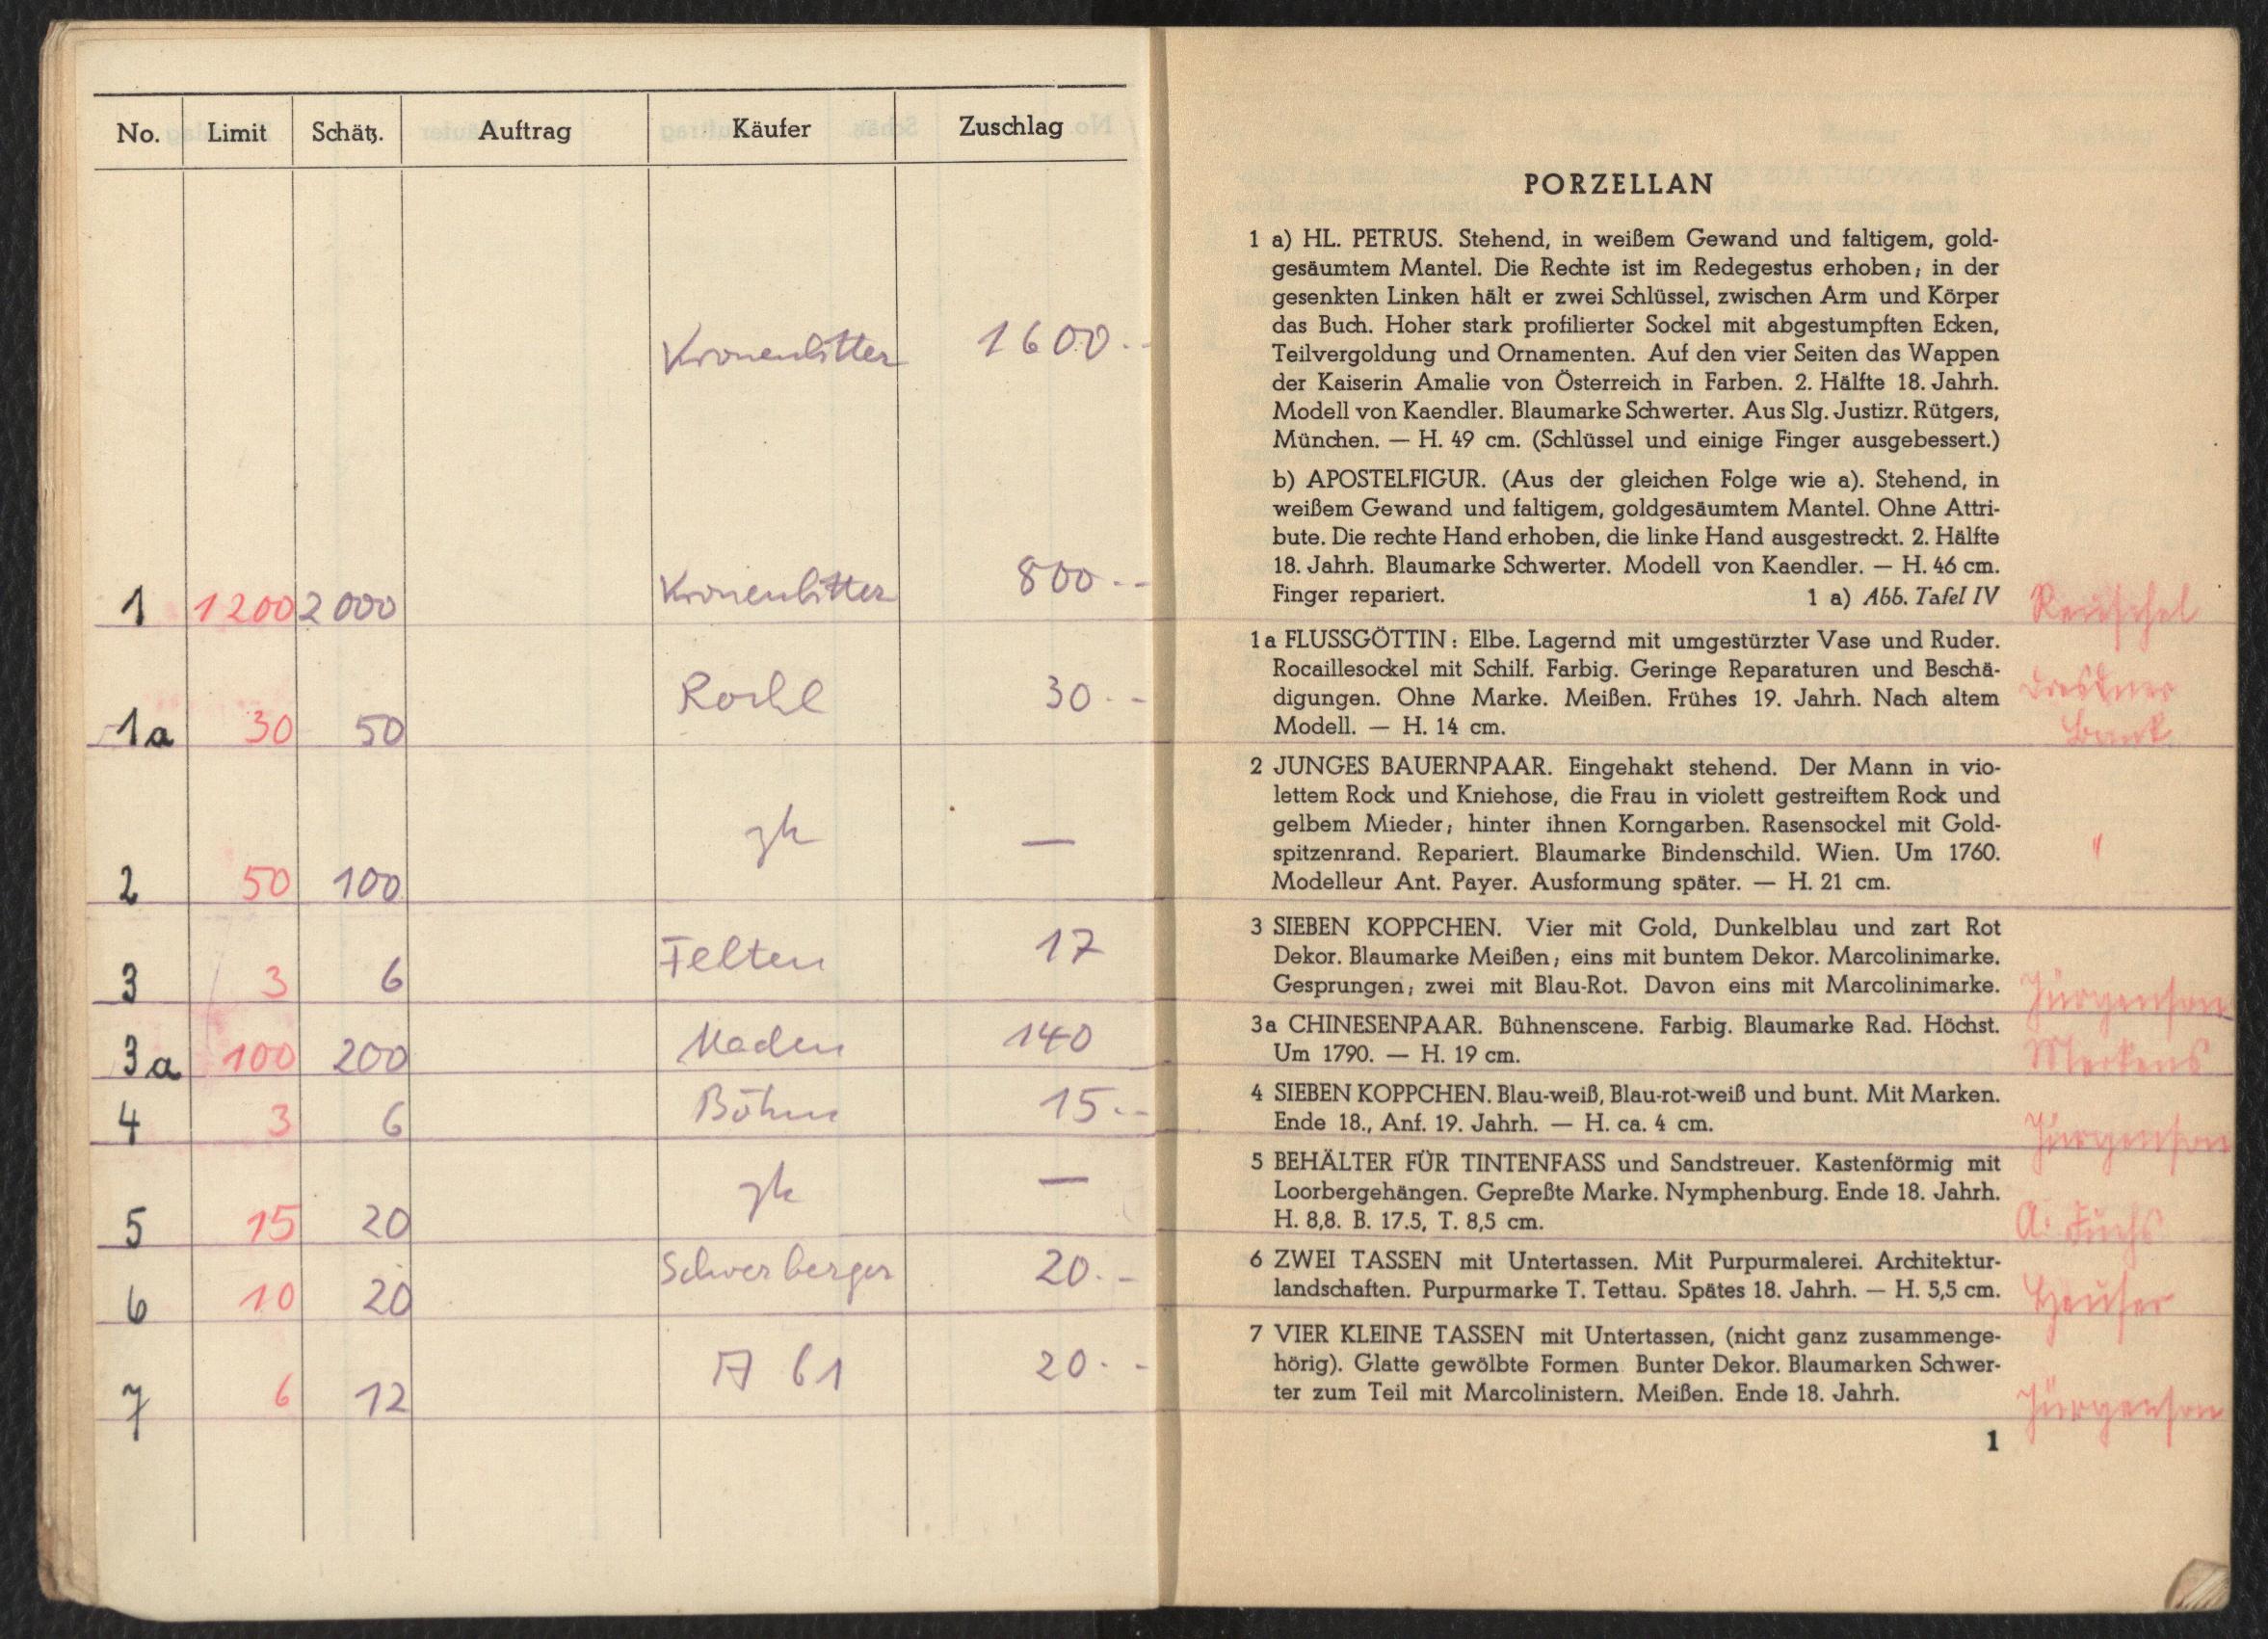 No. Limit Schätz. Auftrag Käufer Zuschlag
Kronenbitter 1600.-
1 1200 2000 Kronenbitter 800.-
1a 30 50 30.-
2 50 100 —
3 3 6 Felten 17
3a 100 200 140
4 3 6 Böhm 15.-
5 15 20 —
6 10 20 20.-
7 6 12 A 61 20.-
PORZELLAN
1 a) HL. PETRUS. Stehend, in weißem Gewand und faltigem, gold-
gesäumtem Mantel. Die Rechte ist im Redegestus erhoben; in der
gesenkten Linken hält er zwei Schlüssel, zwischen Arm und Körper
das Buch. Hoher stark profilierter Sockel mit abgestumpften Ecken,
Teilvergoldung und Ornamenten. Auf den vier Seiten das Wappen
der Kaiserin Amalie von Österreich in Farben. 2. Hälfte 18. Jahrh.
Modell von Kaendler. Blaumarke Schwerter. Aus Slg. Justizr. Rütgers,
München. — H. 49 cm. (Schlüssel und einige Finger ausgebessert.)
b) APOSTELFIGUR. (Aus der gleichen Folge wie a). Stehend, in
weißem Gewand und faltigem, goldgesäumtem Mantel. Ohne Attri-
bute. Die rechte Hand erhoben, die linke Hand ausgestreckt. 2. Hälfte
18. Jahrh. Blaumarke Schwerter. Modell von Kaendler. — H. 46 cm.
Finger repariert. 1 a) Abb. Tafel IV Reuschel
1a FLUSSGÖTTIN: Elbe. Lagernd mit umgestürzter Vase und Ruder.
Rocaillesockel mit Schilf. Farbig. Geringe Reparaturen und Beschä-
digungen. Ohne Marke. Meißen. Frühes 19. Jahrh. Nach altem Dresdner
Modell. — H. 14 cm. Bank
2 JUNGES BAUERNPAAR. Eingehakt stehend. Der Mann in vio-
lettem Rock und Kniehose, die Frau in violett gestreiftem Rock und
gelbem Mieder; hinter ihnen Korngarben. Rasensockel mit Gold-
spitzenrand. Repariert. Blaumarke Bindenschild. Wien. Um 1760. "
Modelleur Ant. Payer. Ausformung später. — H. 21 cm.
3 SIEBEN KOPPCHEN. Vier mit Gold, Dunkelblau und zart Rot
Dekor. Blaumarke Meißen; eins mit buntem Dekor. Marcolinimarke.
Gesprungen; zwei mit Blau-Rot. Davon eins mit Marcolinimarke. Jürgenson
3a CHINESENPAAR. Bühnenscene. Farbig. Blaumarke Rad. Höchst.
Um 1790. — H. 19 cm. Merkens
4 SIEBEN KOPPCHEN. Blau-weiß, Blau-rot-weiß und bunt. Mit Marken.
Ende 18., Anf. 19. Jahrh. — H. ca. 4 cm. Jürgenson
5 BEHÄLTER FÜR TINTENFASS und Sandstreuer. Kastenförmig mit
Loorbergehängen. Gepreßte Marke. Nymphenburg. Ende 18. Jahrh.
H. 8,8. B. 17.5, T. 8,5 cm. A. Fuchs
6 ZWEI TASSEN mit Untertassen. Mit Purpurmalerei. Architektur-
landschaften. Purpurmarke T. Tettau. Spätes 18. Jahrh. — H. 5,5 cm. Heuser
7 VIER KLEINE TASSEN mit Untertassen, (nicht ganz zusammenge-
hörig). Glatte gewölbte Formen Bunter Dekor. Blaumarken Schwer-
ter zum Teil mit Marcolinistern. Meißen. Ende 18. Jahrh. Jürgenson
1